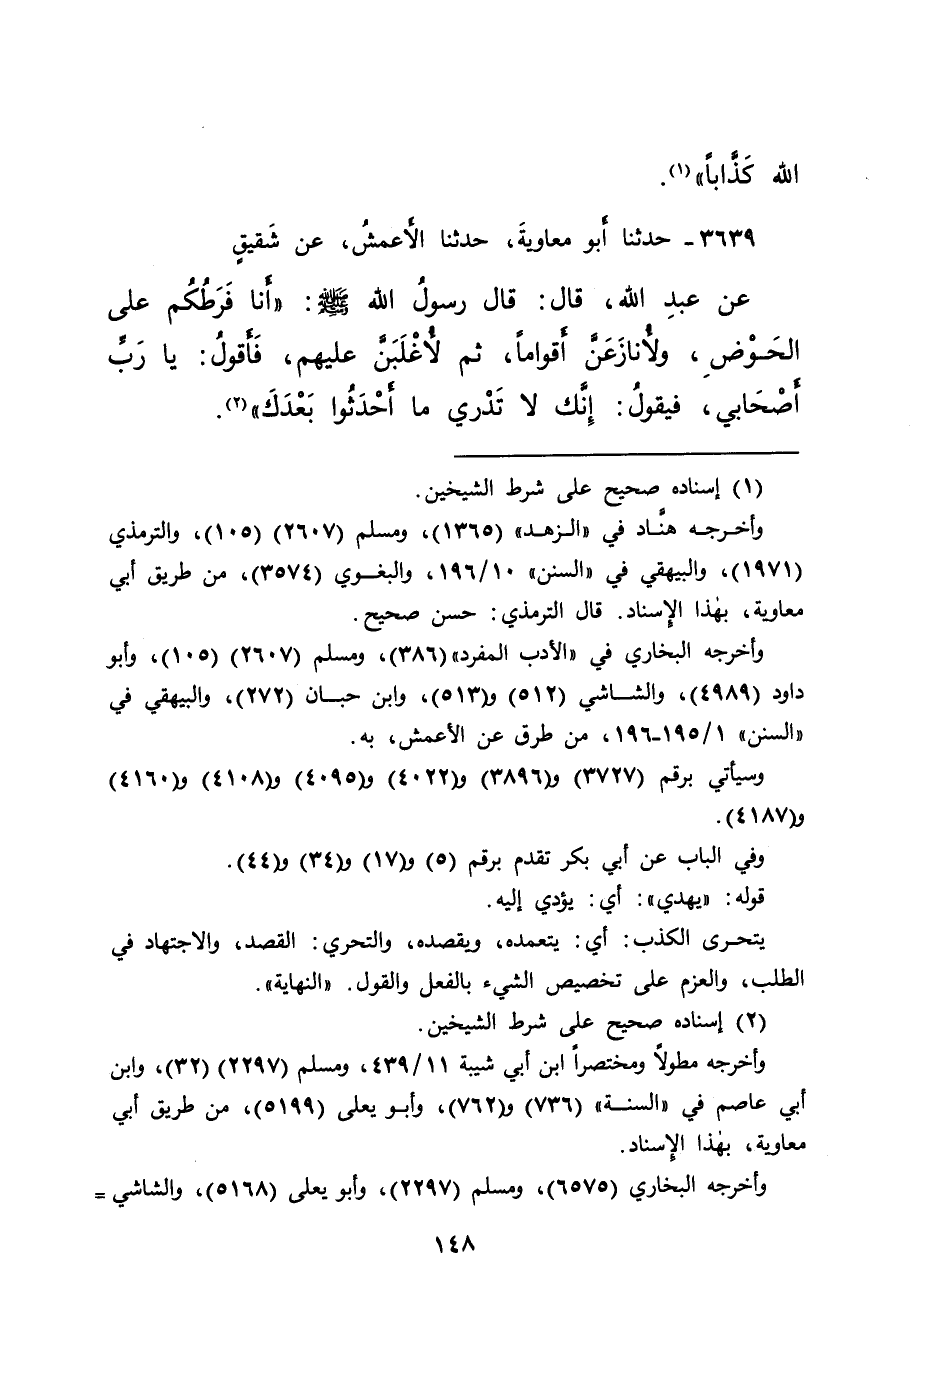 الله كَذَّاباً»(١).
٣٦٣٩ـ حدثنا أَبو معاويةَ، حدثنا الأَعمشُ، عن شَقيقٍ
عن عبدِ الله، قال: قال رسولُ الله ﷺ: «أَنا فَرَطُكُم على
الحَـوْضِ، ولأُنازَعَنَّ أَقواماً، ثم لأُغْلَبَنَّ عليهم، فَأَقولُ: يا رَبِّ
أَصْحَابي، فيقولُ: إِنَّك لا تَدْري ما أَحْدَثُوا بَعْدَكَ»(٢).
(١) إسناده صحيح على شرط الشيخين.
وأخـرجـه هنَّاد في «الـزهـد» (١٣٦٥)، ومسلم (٢٦٠٧) (١٠٥)، والترمذي
(١٩٧١)، والبيهقي في «السنن» ١٩٦/١٠، والبغـوي (٣٥٧٤)، من طريق أبي
معاوية، بهٰذا الإِسناد. قال الترمذي: حسن صحيح.
وأخرجه البخاري في «الأدب المفرد»(٣٨٦)، ومسلم (٢٦٠٧) (١٠٥)، وأبو
داود (٤٩٨٩)، والشـاشي (٥١٢) و(٥١٣)، وابن حبـان (٢٧٢)، والبيهقي في
«السنن» ١٩٥/١ـ١٩٦، من طرق عن الأعمش، به.
وسيأتي برقم (٣٧٢٧) و(٣٨٩٦) و(٤٠٢٢) و(٤٠٩٥) و(٤١٠٨) و(٤١٦٠)
و(٤١٨٧).
وفي الباب عن أبي بكر تقدم برقم (٥) و(١٧) و(٣٤) و(٤٤).
قوله: «يهدي»: أي: يؤدي إليه.
يتحـرى الكذب: أي: يتعمده، ويقصده، والتحري: القصد، والاجتهاد في
الطلب، والعزم على تخصيص الشيء بالفعل والقول. «النهاية».
(٢) إسناده صحيح على شرط الشيخين.
وأخرجه مطولاً ومختصراً ابن أبي شيبة ٤٣٩/١١، ومسلم (٢٢٩٧) (٣٢)، وابن
أبي عاصم في «السنـة» (٧٣٦) و(٧٦٢)، وأبـو يعلى (٥١٩٩)، من طريق أبي
معاوية، بهٰذا الإِسناد.
وأخرجه البخاري (٦٥٧٥)، ومسلم (٢٢٩٧)، وأبو يعلى (٥١٦٨)، والشاشي =
١٤٨